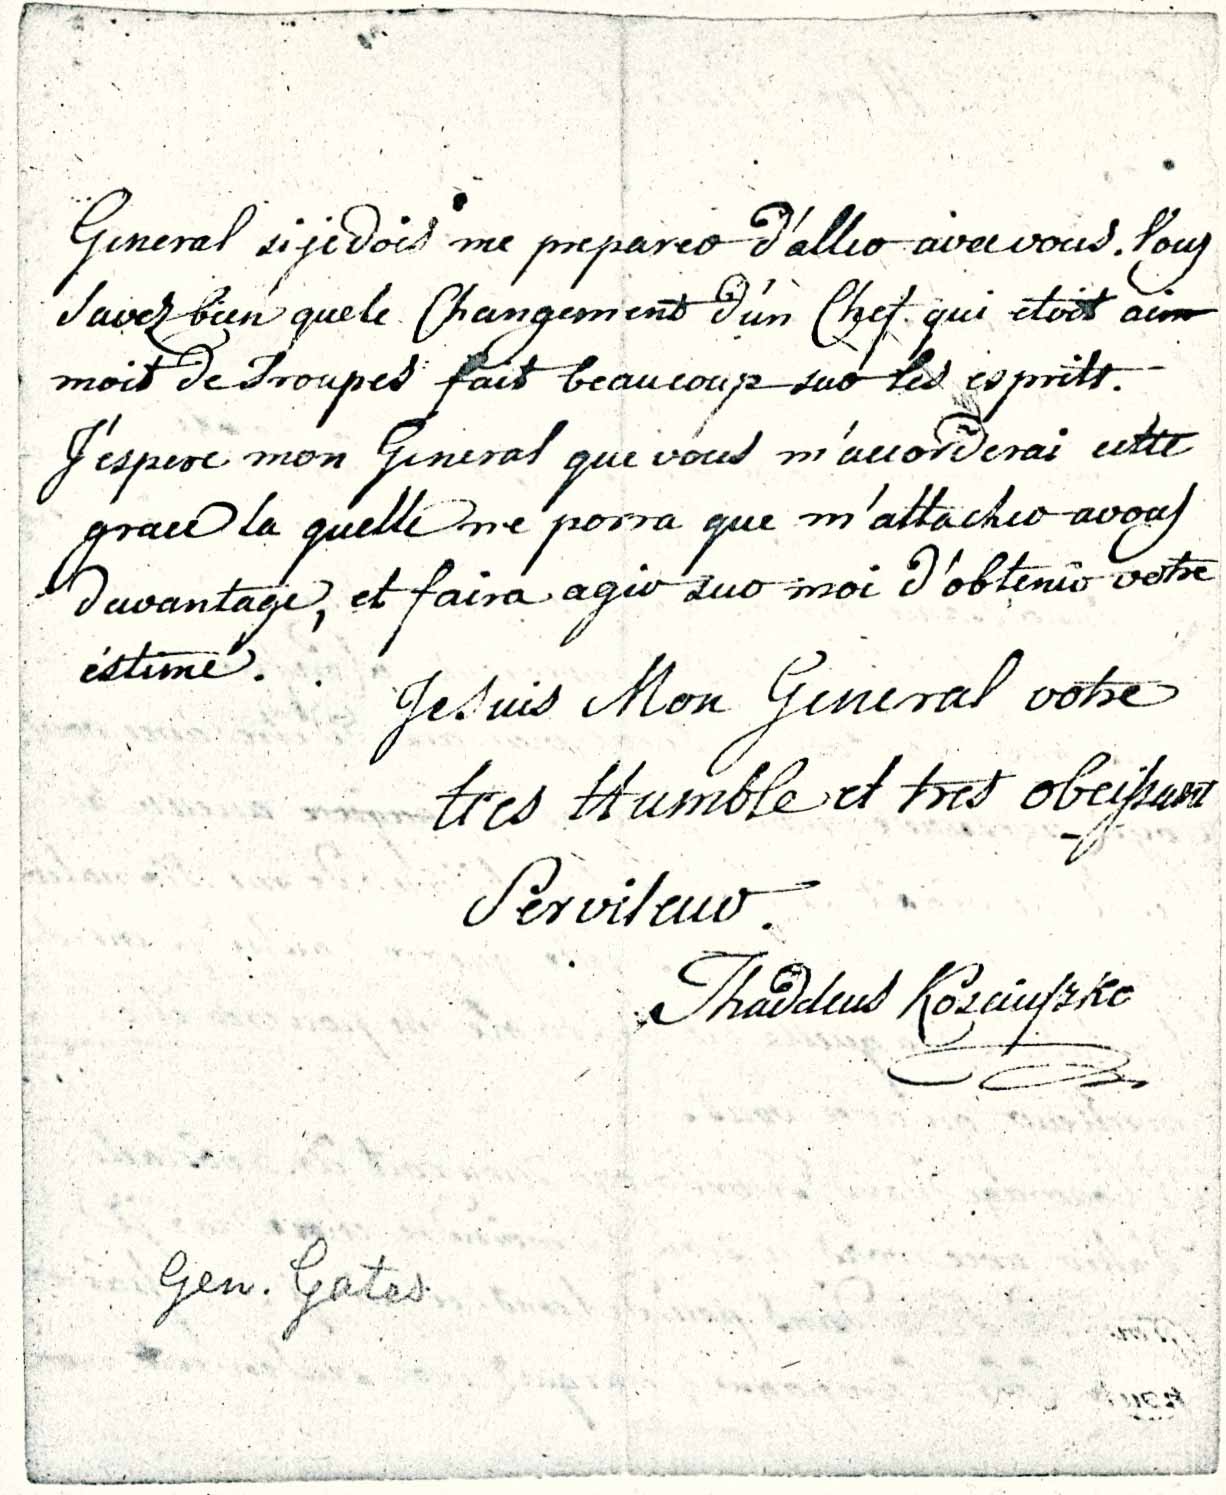 General si je dois me preparer d'aller avec vous. Vous
Savez bien que le Changement d'un Chef qui etoit aim
moit de Troupes fait beaucoup sur les esprits.
J'espere mon General que vous m'accorderai cette
grace la quelle ne porra que m'attacher a vous
davantage, et faira agir sur moi d'obtenir votre
éstime.
Je Suis Mon General votre
tres Humble et tres obeissant
Serviteur.
Thaddeus Kosciuszko
Gen. Gates